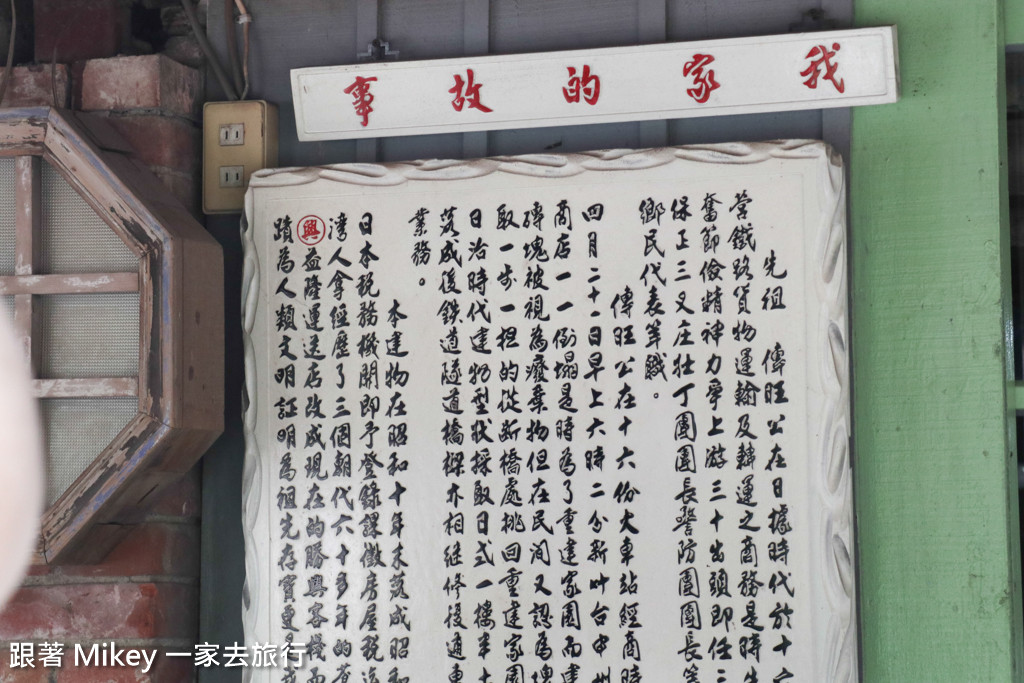 我家的故事
先祖 傳旺公在日據時代於十六
營鐵路貨物運輸及轉運之商務是時生
奮節儉精神力爭上游三十出頭即任三
保正三叉庄壯丁團團長警防團團長等
鄉民代表等職。
傳旺公在十六份大車站經商時
四月二十一日早上六時二分新竹台中州
商店一一倒塌是時為了重建家園而建
磚塊被視為廢棄物但在民間又認為塊
取一步一担的從断橋處挑回重建家園
日治時代建物型狀採取日式一樓半土
落成後鉄道隧道橋樑亦相継修復通車
業務。
本建物在昭和十年末落成昭和
日本稅務機關即予登錄課徵房屋稅迄
灣人拿經歷了三個朝代六十多年的蒼
興益隆運送店改成現在的勝興客棧而
蹟為人類文明証明為祖先存實
跟著 Mikey 一家去旅行